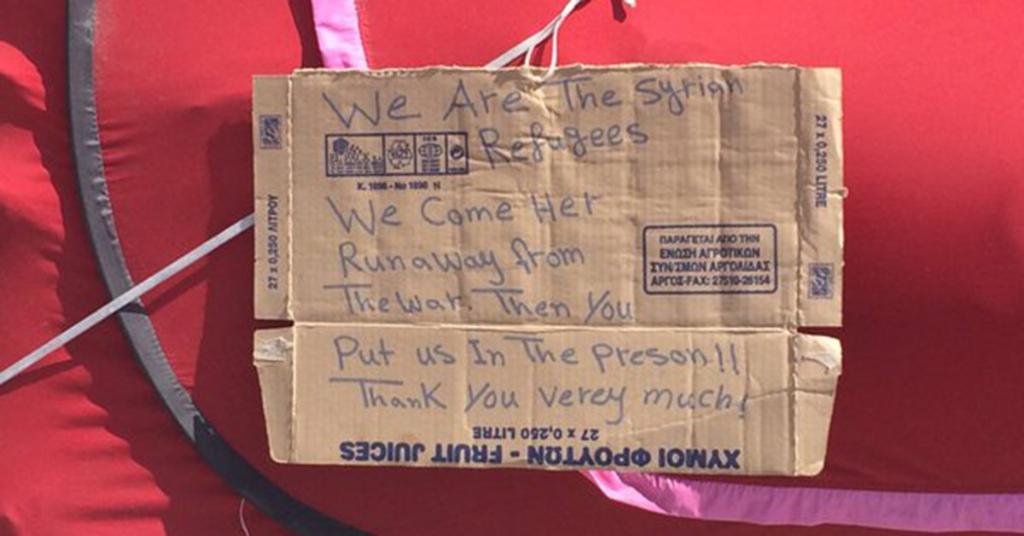 We Are The Syrian
Refugees
K. 1898 - No 1898 H
We Come Her
Runaway from
The war. Then You
Put us In The preson!!
Thank You verey much!
27 x 0,250 ΛΙΤΡΟΥ
27 x 0,250 LITRE
ΠΑΡΑΓΕΤΑΙ ΑΠΟ ΤΗΝ
ΕΝΩΣΗ ΑΓΡΟΤΙΚΩΝ
ΣΥΝ/ΣΜΩΝ ΑΡΓΟΛΙΔΑΣ
ΑΡΓΟΣ-FAX: 27510-26154
27 x 0,250 LITRE
ΧΥΜΟΙ ΦΡΟΥΤΩΝ - FRUIT JUICES